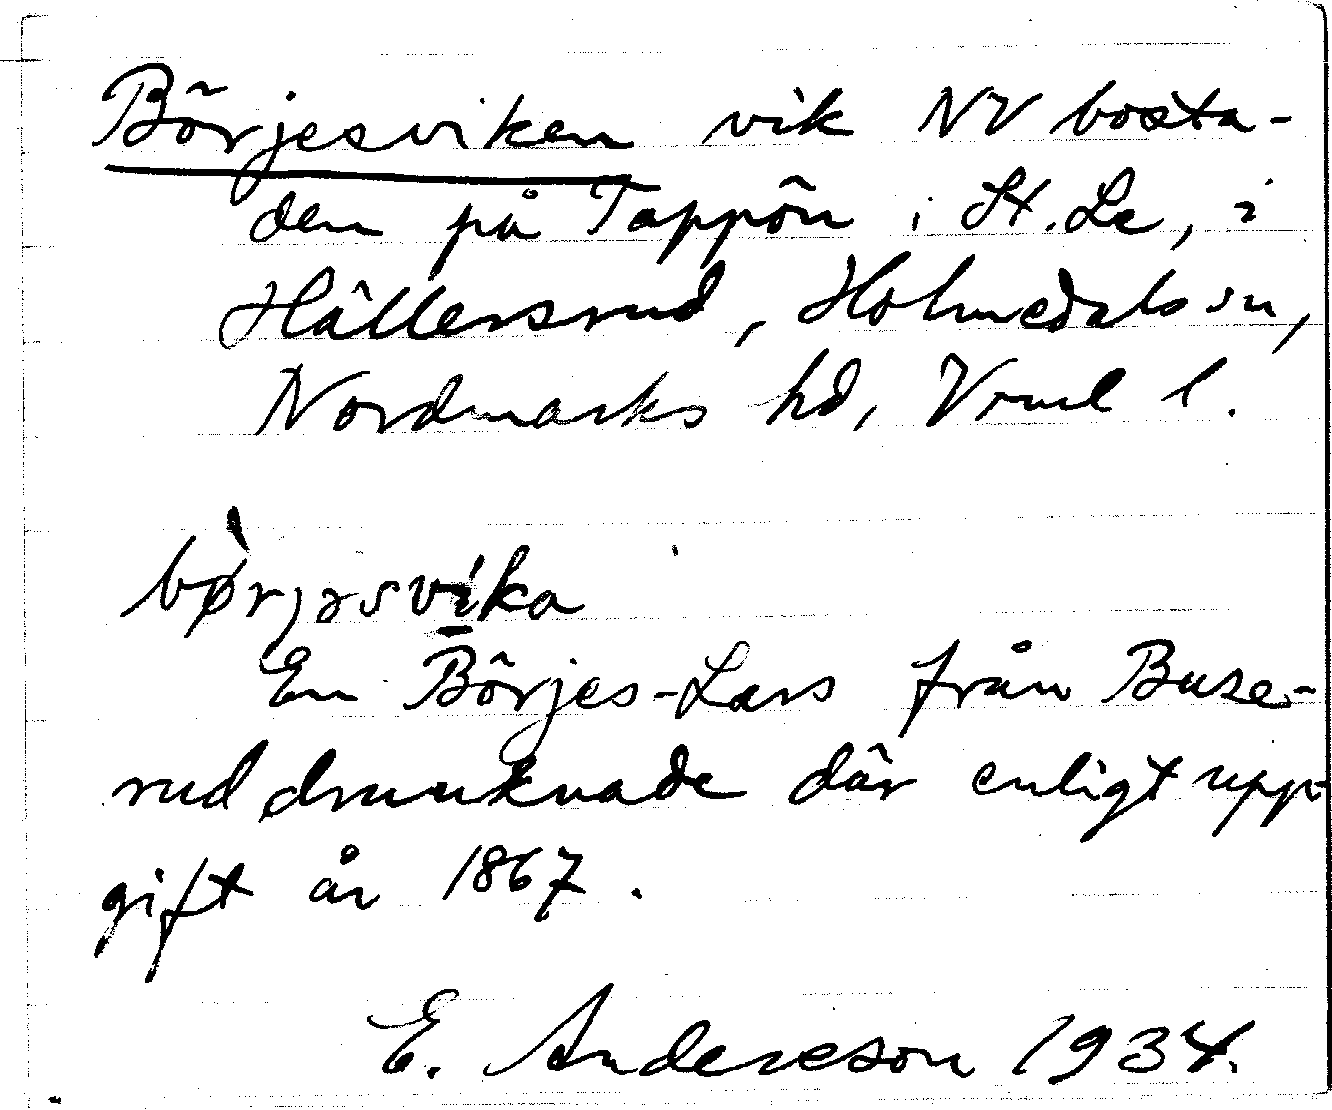 Börjesviken vik NV bosta-
den på Tappön i St. Le, i
Hällersrud, Holmedals sn,
Nordmarks hd, Vrml l.
bø̀rjəsvika
En Börjes-Lars från Buse-
rud drunknade där enligt upp-
gift år 1867.
E. Andersson 1934.